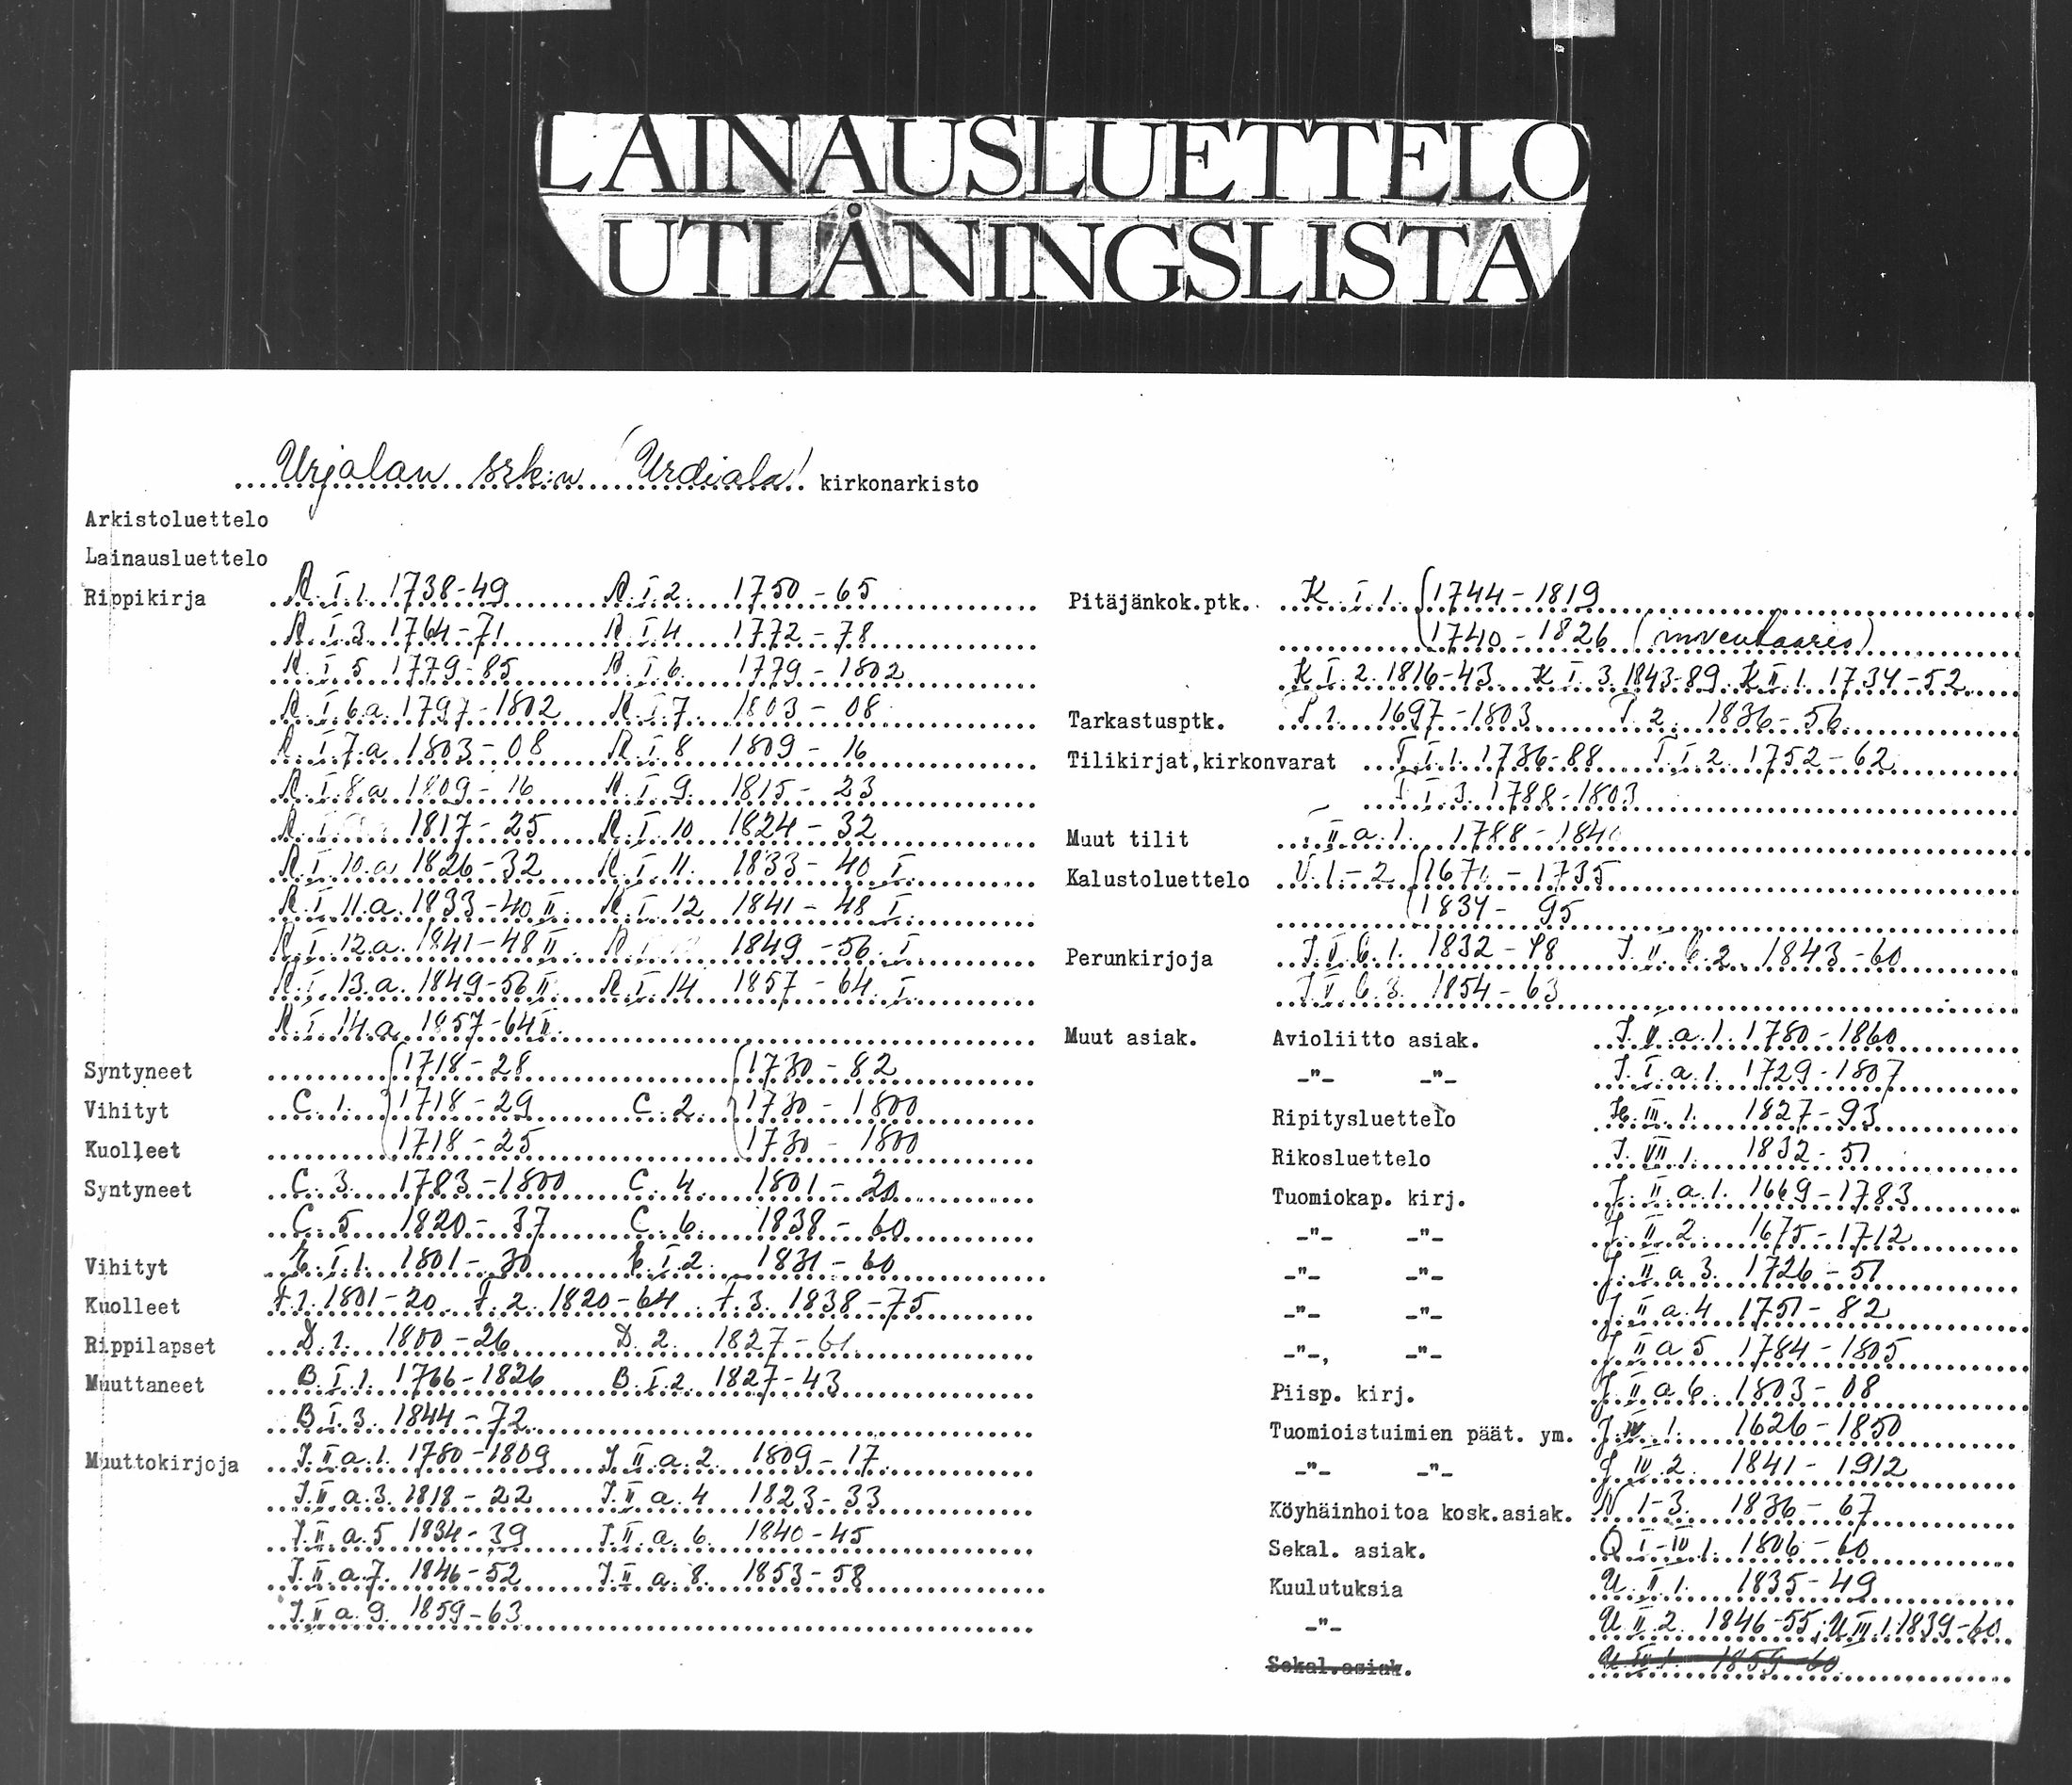 LAINAUSLUETTELO
UTLÅNINGSLISTA
Urjalan srk:n (Urdiala) kirkonarkisto
Arkistoluettelo
Lainausluettelo
Rippikirja R.I.1. 1738-49 R.I.2. 1750-65
R.I.3. 1764-71 R.I.4 1772-78
R.I.5 1779-85 R.I.6. 1779-1802
R.I.6.a. 1797-1802 R.I.7. 1803-08
R.I.7.a 1803-08 R.I.8 1809-16
R.I.8.a 1809-16 R.I.9. 1815-23
R.I. 1817-25 R.I.10 1824-32
R.I.10.a 1826-32 R.I.11. 1833-40 I.
R.I.11.a. 1833-40 II. R.I.12 1841-48 I.
R.I.12.a. 1841-48 II R. 1849-56. I
R.I.13.a. 1849-56 II. R.I.14 1857-64. I.
R.I.14.a 1857-64 II.
Syntyneet 1718-28 1730-82
Vihityt C.1. 1718-29 C.2. 1730-1800
Kuolleet 1718-25 1730-1800
Syntyneet C.3. 1783-1800 C.4. 1801-20
C.5 1820-37 C.6. 1838-60
Vihityt E.I.1. 1801-30 E.I.2. 1831-60
Kuolleet F.1. 1801-20. F.2. 1820-64 F.3. 1838-75
Rippilapset D.1. 1800-26 D.2. 1827-61.
Muuttaneet B.I.1. 1766-1826 B.I.2. 1827-43
B.I.3. 1844-72.
Muuttokirjoja J.II.a.1. 1780-1809 J.II.a.2. 1809-17.
J.II.a.3. 1818-22 J.II.a.4 1823-33
J.II.a.5 1834-39 J.II.a.6. 1840-45
J.II.a.7. 1846-52 J.II.a.8. 1853-58
J.II.a.9. 1859-63
Pitäjänkok.ptk. K.I.1. 1744-1819
1740-1826 (inventaario)
K.I.2. 1816-43. K.I.3. 1843-89. K.II.1. 1734-52.
Tarkastusptk. 1. 1697-1803 2. 1836-56.
Tilikirjat,kirkonvarat T.I.1. 1736-88 T.I.2. 1752-62
T.I.3. 1788-1803
Muut tilit II.a.1. 1788-
Kalustoluettelo U.1.-2 -1735
1834-95
Perunkirjoja 1832- 1843-60
1854-63
Muut asiak. Avioliitto asiak. J.V.a.1. 1780-1860
-"- -"- J.I.a.1. 1729-1807
Ripitysluettelo III.1. 1827-93
Rikosluettelo J.VII.1. 1832-51
Tuomiokap. kirj. J.II.a.1. 1669-1783
-"- -"- J.II.2. 1675-1712
-"- -"- J.II.a.3. 1726-51
-"- -"- J.II.a.4 1751-82
-"-, -"- J.II.a.5 1784-1805
Piisp. kirj. J.II.a.6. 1803-08
Tuomioistuimien päät. ym. J.IV.1. 1626-1850
-"- -"- J.IV.2. 1841-1912
Köyhäinhoitoa kosk.asiak. N 1-3. 1836-67
Sekal. asiak. Q I-IV 1. 1806-60
Kuulutuksia U.II.1. 1835-49
-"- U.II.2. 1846-55; U.III.1. 1839-60.
Sekal.asiak. U.IV.1. 1859-60